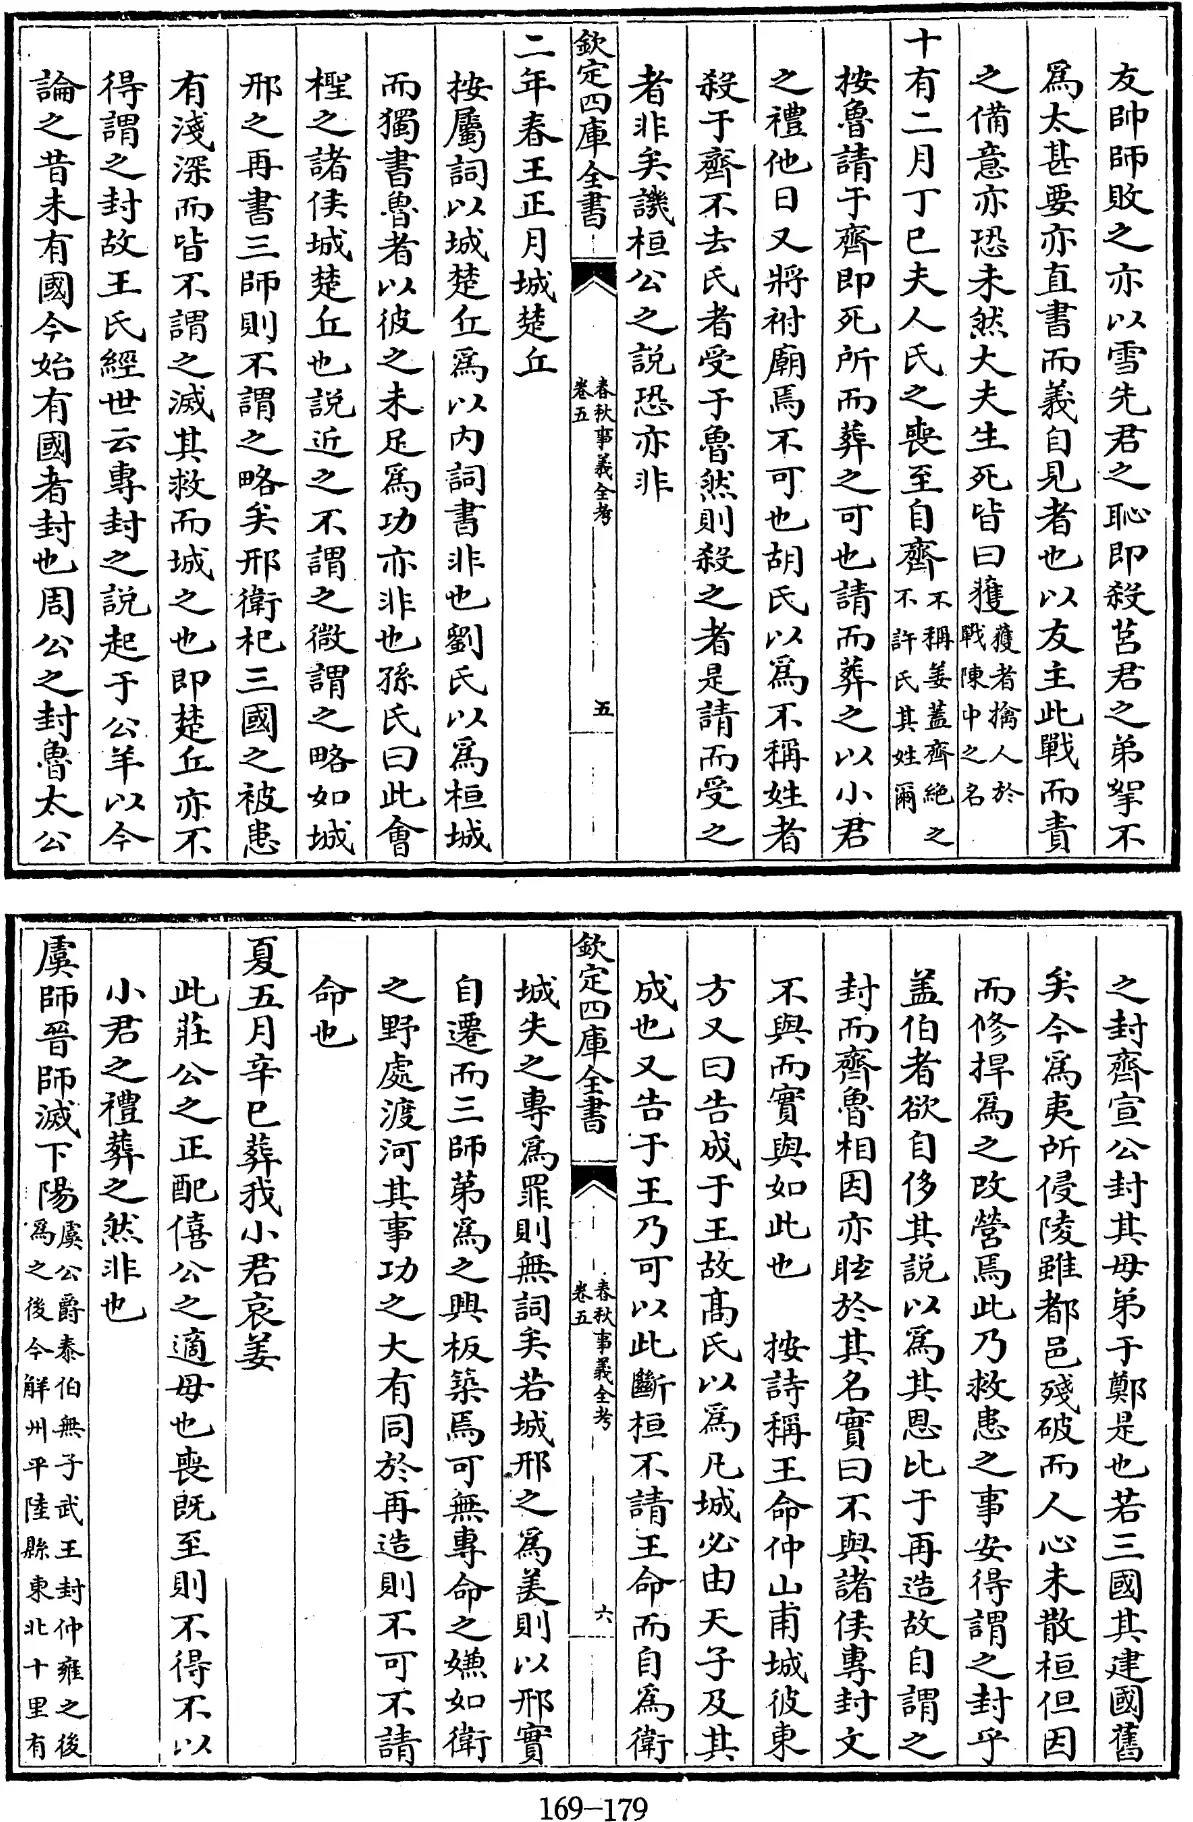 友帥師敗之亦以雪先君之恥即殺莒君之弟挐不
爲太甚要亦直書而義自見者也以友主此戰而責
之備意亦恐未然大夫生死皆曰獲獲者擒人於戰陳中之名
十有二月丁巳夫人氏之喪至自齊不稱姜蓋齊絶之不許氏其姓爾
按魯請于齊即死所而葬之可也請而葬之以小君
之禮他日又將祔廟焉不可也胡氏以爲不稱姓者
殺于齊不去氏者受于魯然則殺之者是請而受之
者非矣譏桓公之説恐亦非
欽定四庫全書
春秋事義全考
卷五
五
二年春王正月城楚丘
按屬詞以城楚丘爲以内詞書非也劉氏以爲桓城
而獨書魯者以彼之未足爲功亦非也孫氏曰此會
檉之諸侯城楚丘也説近之不謂之微謂之略如城
邢之再書三師則不謂之略矣邢衛杞三國之被患
有淺深而皆不謂之滅其救而城之也即楚丘亦不
得謂之封故王氏經世云專封之説起于公羊以今
論之昔未有國今始有國者封也周公之封魯太公
之封齊宣公封其母弟于鄭是也若三國其建國舊
矣今爲夷所侵陵雖都邑殘破而人心未散桓但因
而修捍爲之改營焉此乃救患之事安得謂之封乎
盖伯者欲自侈其説以爲其恩比于再造故自謂之
封而齊魯相因亦眩於其名實曰不與諸侯專封文
不與而實與如此也　按詩稱王命仲山甫城彼東
方又曰告成于王故髙氏以爲凡城必由天子及其
成也又告于王乃可以此斷桓不請王命而自爲衛
欽定四庫全書
春秋事義全考
卷五
六
城失之專爲罪則無詞矣若城邢之爲美則以邢實
自遷而三師第爲之興板築焉可無專命之嫌如衛
之野處渡河其事功之大有同於再造則不可不請
命也
夏五月辛巳葬我小君哀姜
此莊公之正配僖公之適母也喪既至則不得不以
小君之禮葬之然非也
虞師晉師滅下陽虞公爵泰伯無子武王封仲雍之後爲之後今解州平陸縣東北十里有
169-179